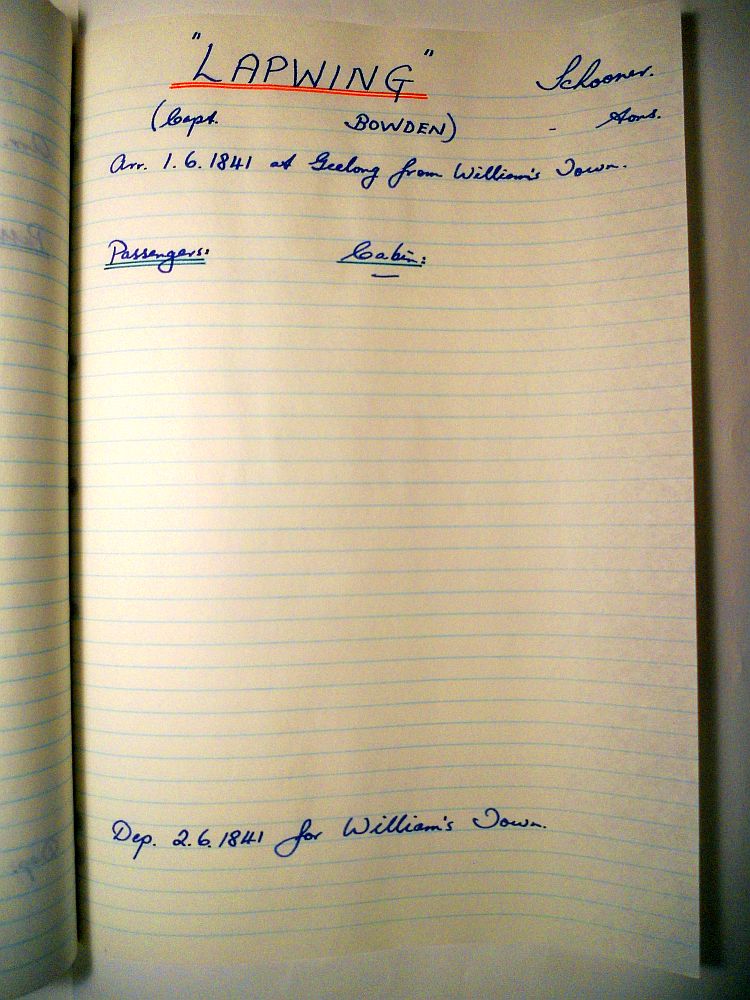 "LAPWING" Schooner.
(Capt. BOWDEN) - tons.
Arr. 1.6.1841 at Geelong from William's Town.
Passengers: Cabin:
—
Dep. 2.6.1841 for William's Town.